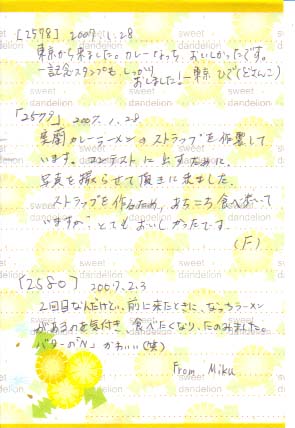 ［2578］ 2007.1.28
東京から来ました。カレー おいしかったです。
－記念スタンプも しっかり
おしました！－東京 ひで（どさんこ）
「2579」 2007.1.28
室蘭カレーラーメンのストラップを作製して
います。コンテストに出すために、
写真を撮らせて頂きに来ました。
ストラップを作るため、あちこち食べ歩いて
いますが、とてもおいしかったです。
（F）
［2580］ 2007.2.3
2回目なんだけど、前に来たときに、なっちラーメン
があるのを気付き、食べたくなり、たのみました。
バターが"N" かわいい（笑）
From Miku
sweet dandelion